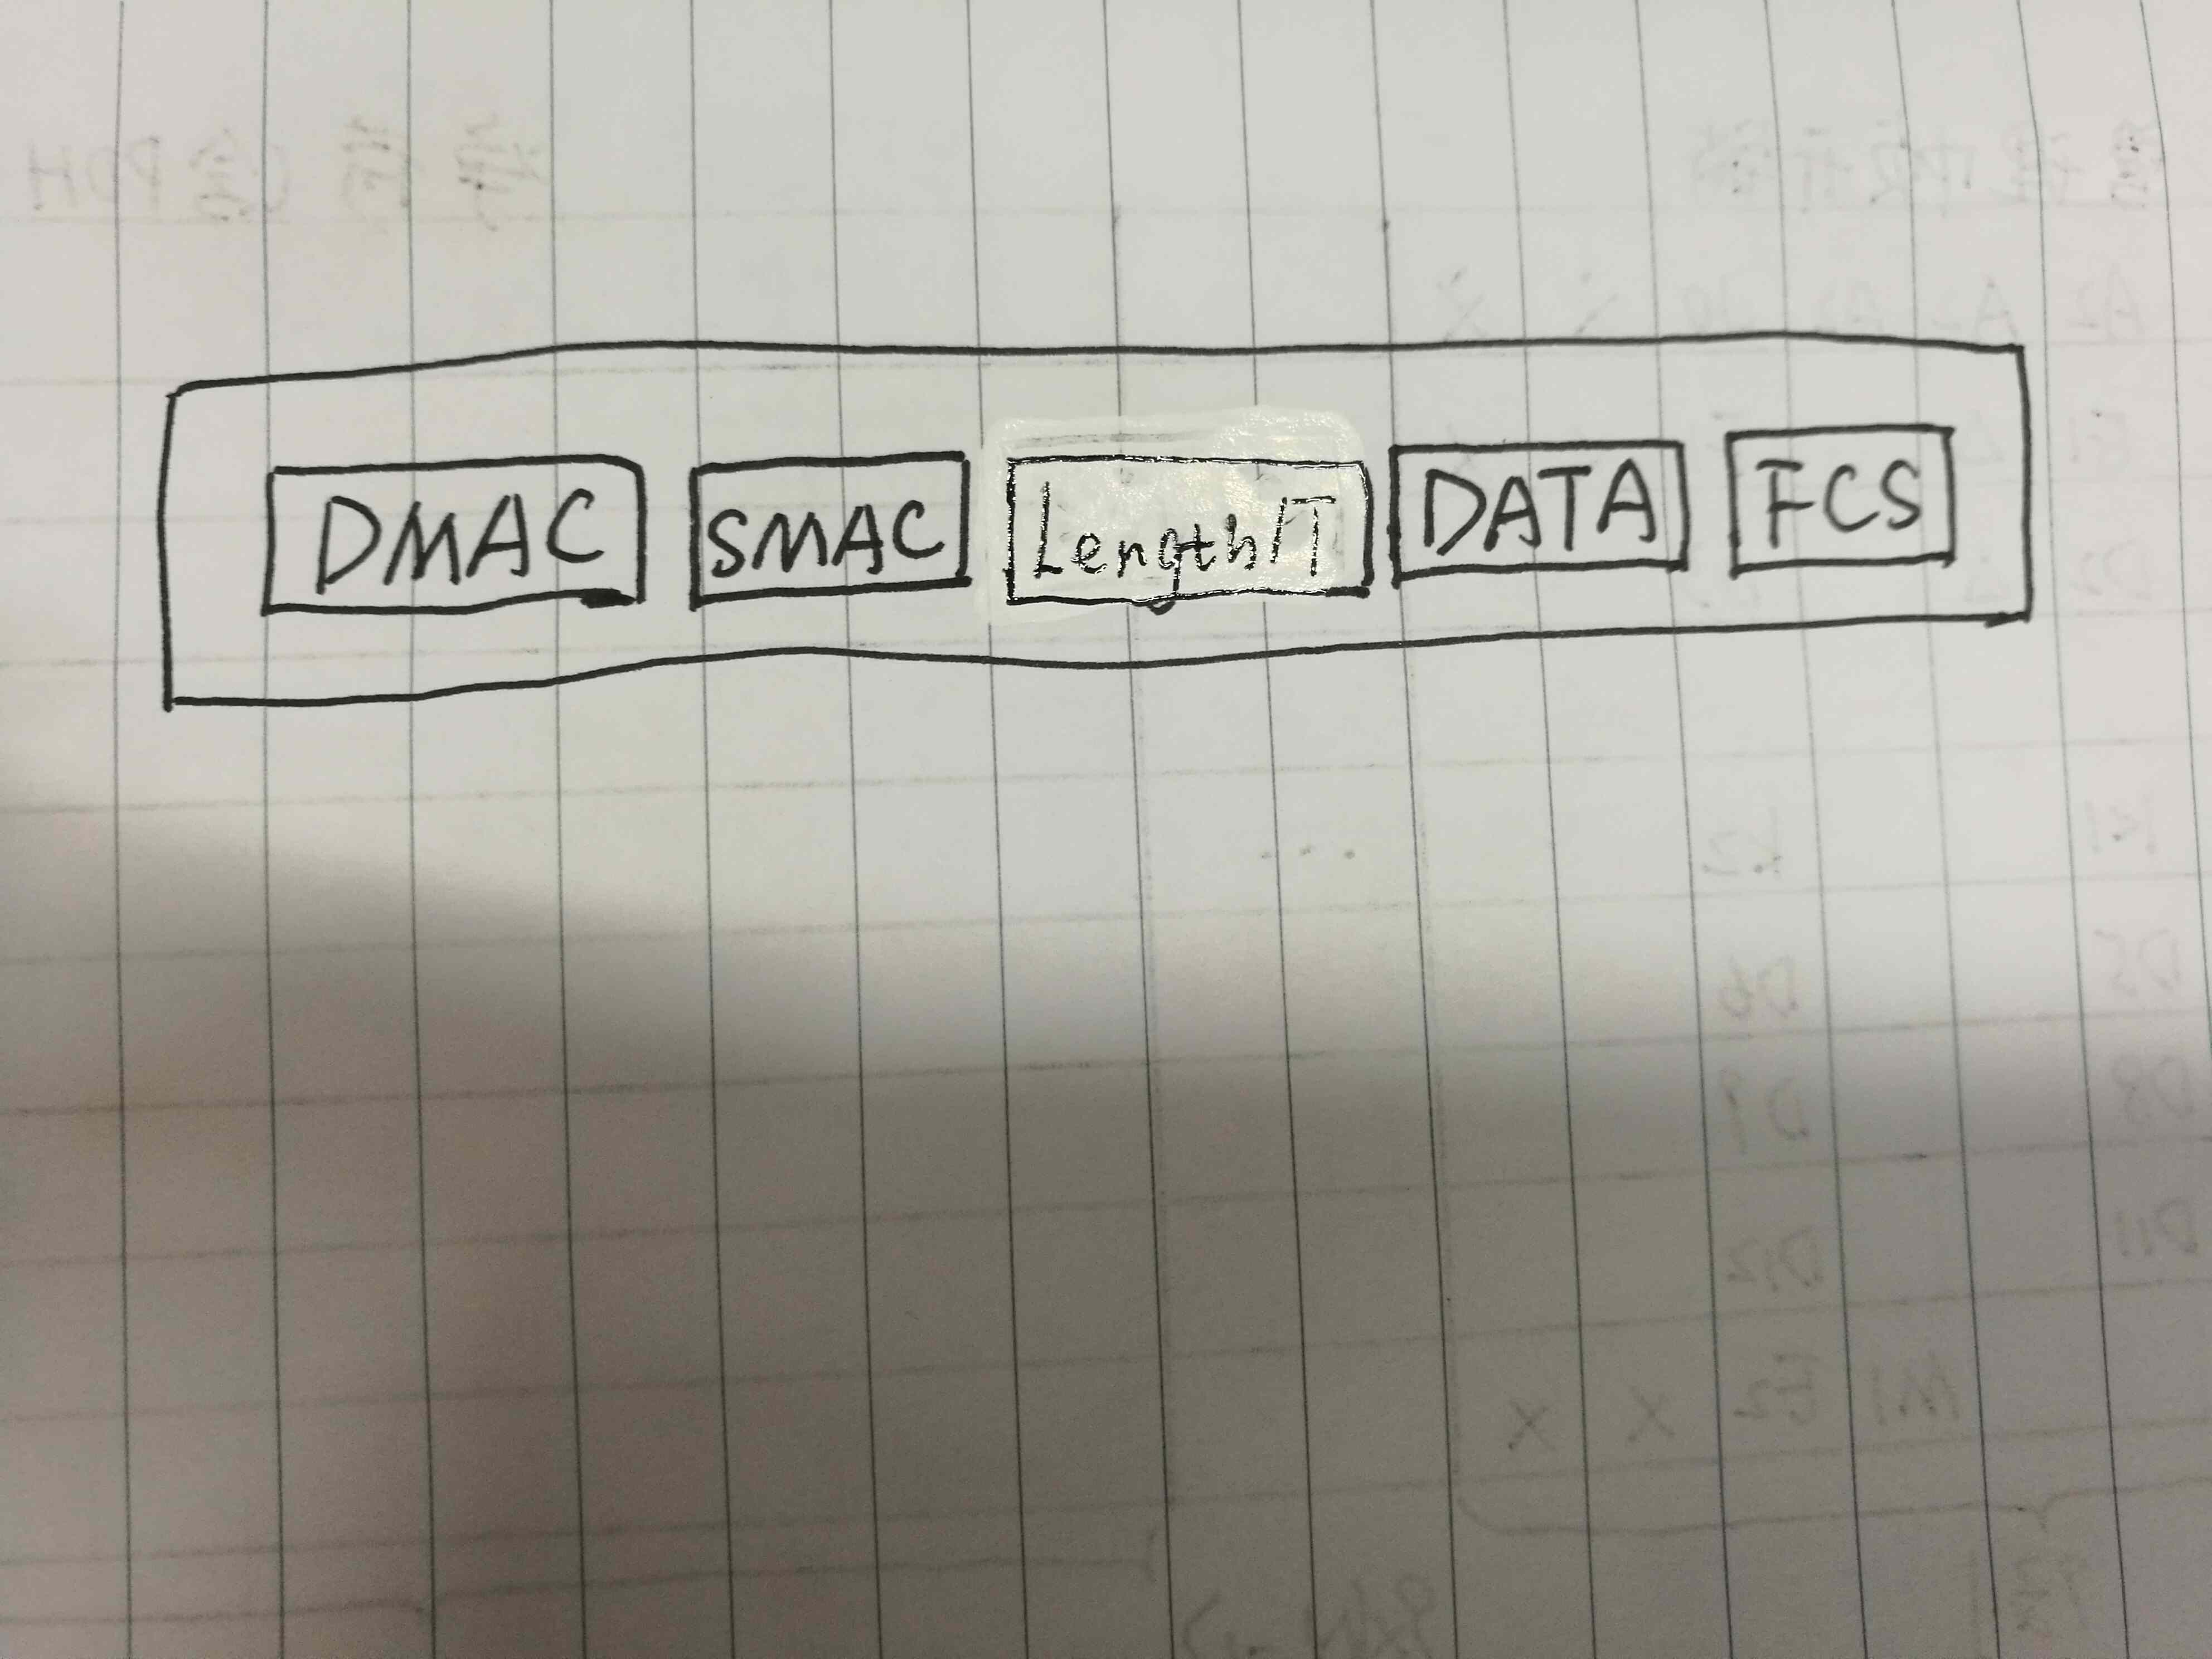 DMAC SMAC Length/T DATA FCS